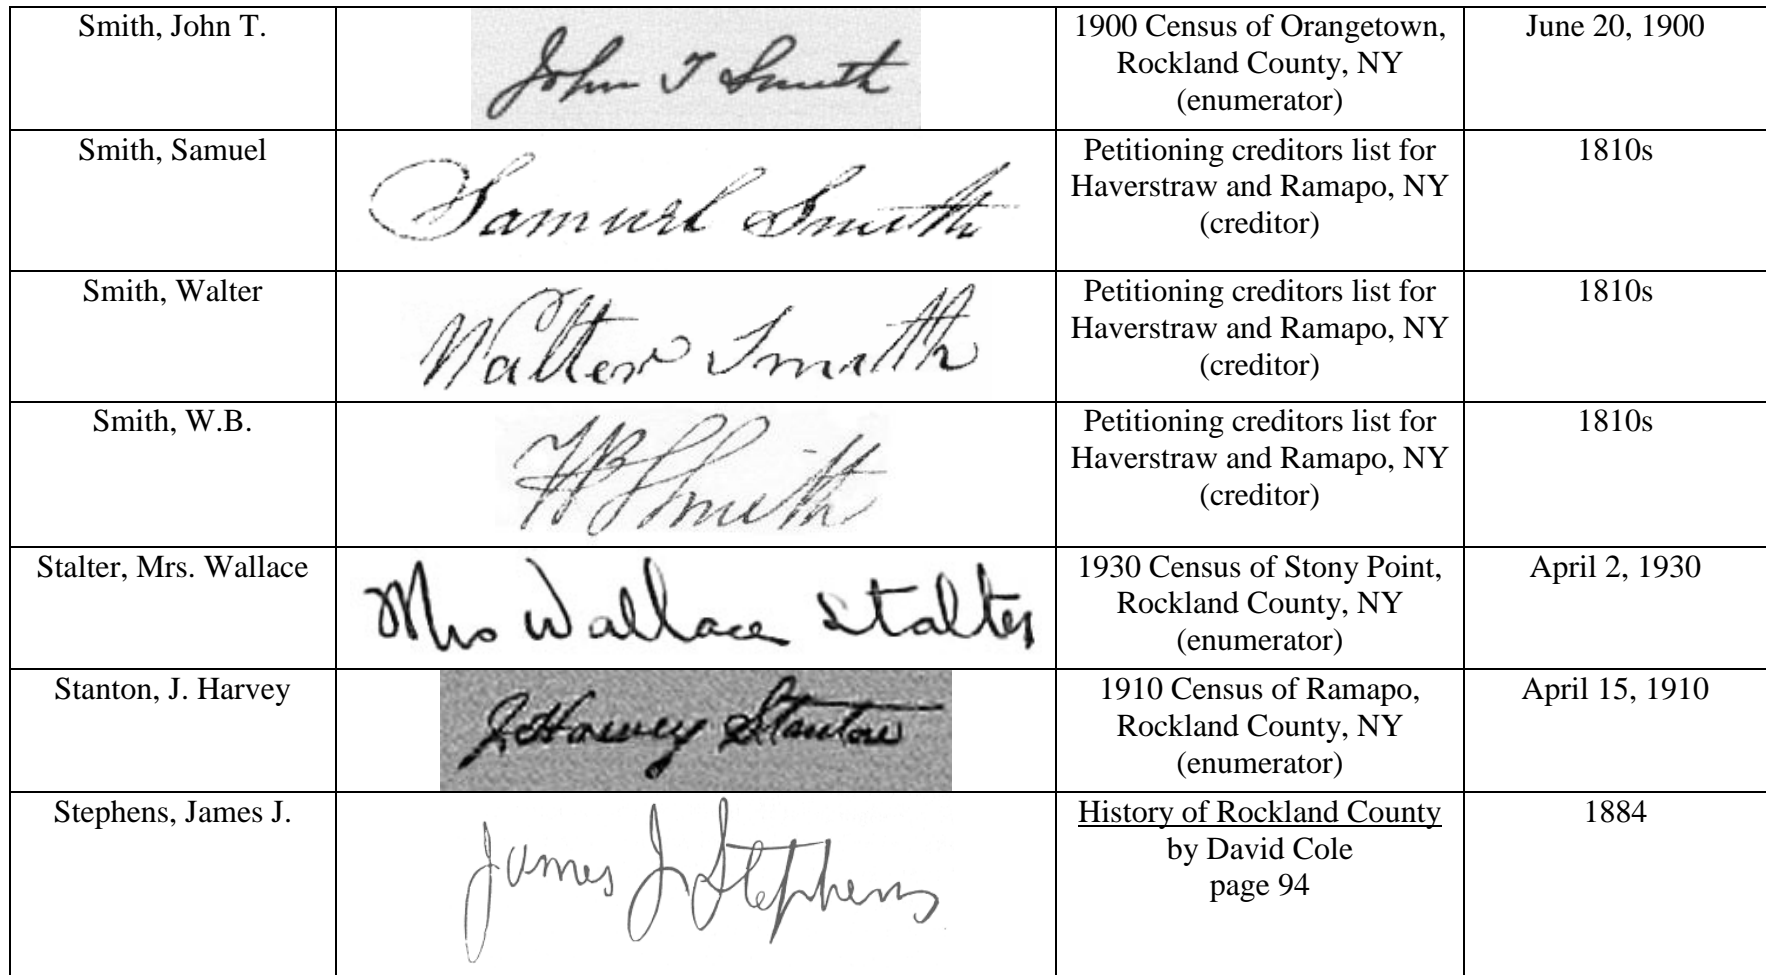 Smith, John T.
John T Smith
1900 Census of Orangetown,
Rockland County, NY
(enumerator)
June 20, 1900
Smith, Samuel
Samuel Smith
Petitioning creditors list for
Haverstraw and Ramapo, NY
(creditor)
1810s
Smith, Walter
Walter Smith
Petitioning creditors list for
Haverstraw and Ramapo, NY
(creditor)
1810s
Smith, W.B.
WB Smith
Petitioning creditors list for
Haverstraw and Ramapo, NY
(creditor)
1810s
Stalter, Mrs. Wallace
Mrs Wallace Stalter
1930 Census of Stony Point,
Rockland County, NY
(enumerator)
April 2, 1930
Stanton, J. Harvey
J. Harvey Stanton
1910 Census of Ramapo,
Rockland County, NY
(enumerator)
April 15, 1910
Stephens, James J.
James J. Stephens
History of Rockland County
by David Cole
page 94
1884